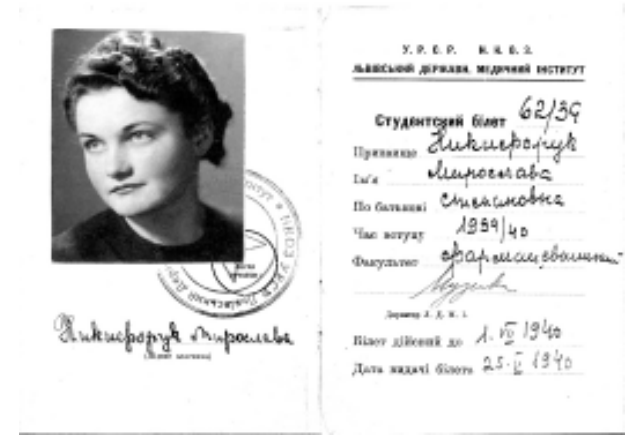 У. Р. С. Р. Н. К. О. З.
ЛЬВІВСЬКИЙ ДЕРЖАВН. МЕДИЧНИЙ ІНСТИТУТ
Студентский білет 62/39
Призвище Никифорук
Ім'я Мирослава
По батькові Степановна
Час вступу 1939/40
Факультет фармацевтичний
Директор Л. Д. М. І.
Білет дійсний до 1. VII 1940
Дата видачі білета 25. II 1940
Никифорук Мирослава